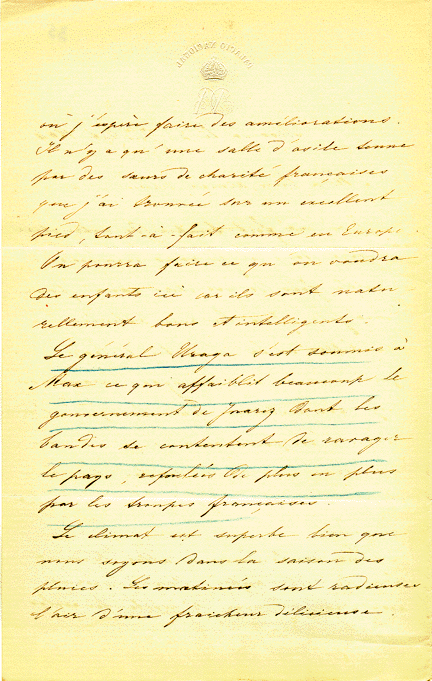 PALACIO NACIONAL
où j'espère faire des améliorations.
Il n'y a qu'une salle d'asile tenue
par des sœurs de charité françaises
que j'ai trouvée sur un excellent
pied, tout-à-fait comme en Europe.
On pourra faire ce qu'on voudra
des enfants ici car ils sont natu-
rellement bons et intelligents.
Le général Uraga s'est soumis à
Max ce qui affaiblit beaucoup le
gouvernement de Juarez dont les
bandes se contentent de ravager
le pays, refoulées de plus en plus
par les troupes françaises.
Le climat est superbe bien que
nous soyons dans la saison des
pluies. Les matinées sont radieuses
l'air d'une fraicheur délicieuse.